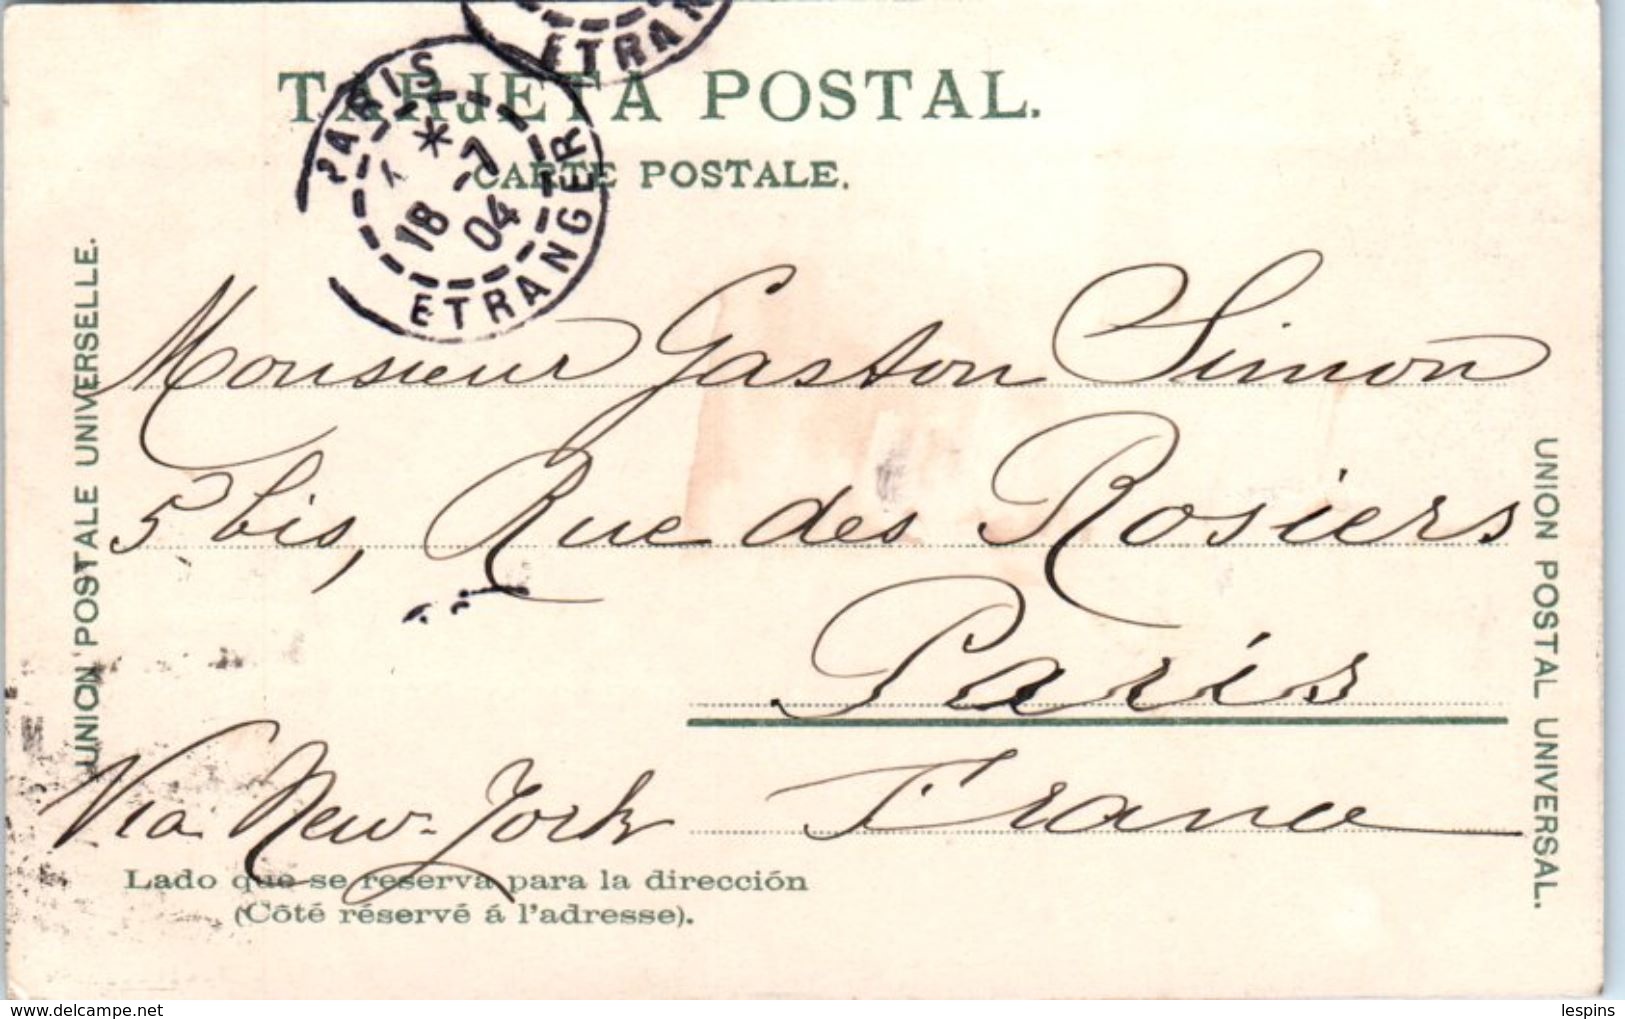 ETRAN
TARJETA POSTAL.
CARTE POSTALE.
PARIS
* 18 -7 04
ETRANGER
UNION POSTALE UNIVERSELLE.
UNION POSTAL UNIVERSAL.
Monsieur Gaston Simon
5 bis, Rue des Rosiers
Paris
Via New-York France
Lado que se reserva para la dirección
(Côté réservé á l'adresse).
www.delcampe.net
lespins